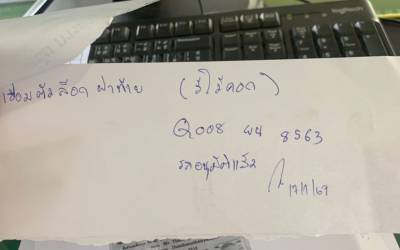 logitech
เชื่อมตัวล็อกฝาท้าย (รีโว่คอก)
Q008 ผน 8563
รออนุมัติแล้ว
17/1/69